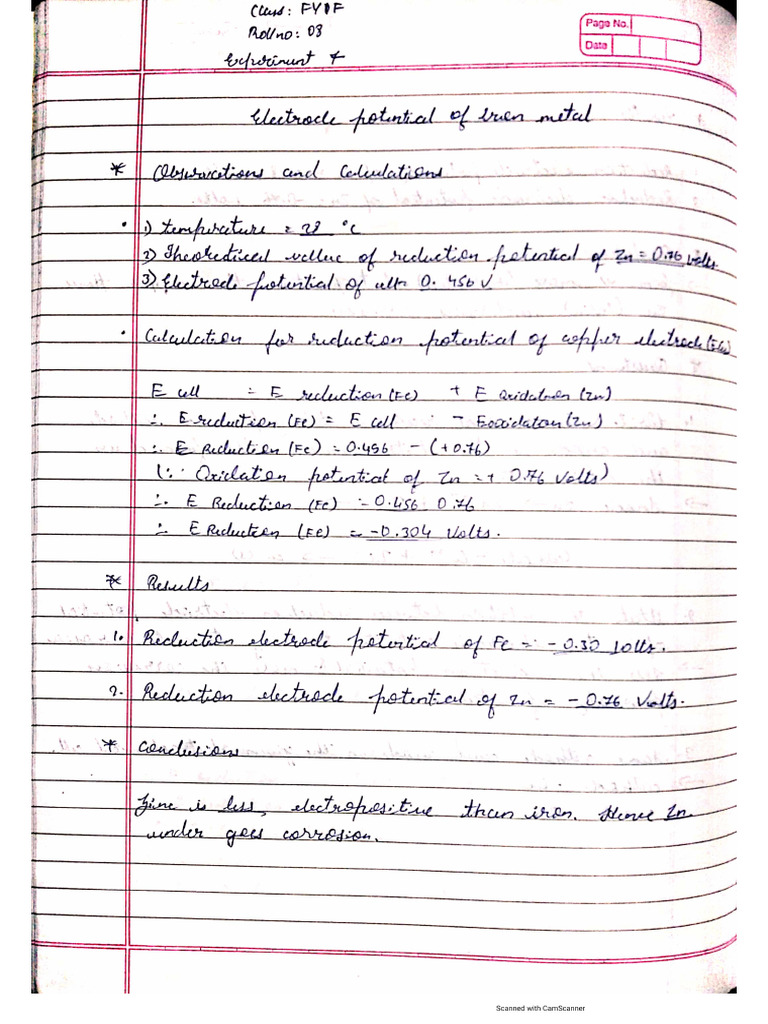 Class: FYIF
Roll no: 03
Page No.
Date
Experiment 4
Electrode potential of Iron metal
* Observations and Calculations
• 1) Temperature = 28 °C
2) Theoretical value of reduction potential of Zn = 0.76 volts.
3) Electrode potential of cell = 0. 456 V
• Calculation for reduction potential of copper electrode (ECu)
E cell = E reduction (Fe) + E Oxidation (Zn)
∴ E reduction (Fe) = E cell - Eoxidation (Zn).
∴ E Reduction (Fe) = 0.456 - (+0.76)
(∵ Oxidation potential of Zn = + 0.76 Volts)
∴ E Reduction (Fe) = 0.456 0.76
∴ E Reduction (Fe) = -0.304 Volts.
* Results
1. Reduction electrode potential of Fe = - 0.30 Volts.
2. Reduction electrode potential of Zn = - 0.76 Volts.
* Conclusions
Zinc is less, electropositive than iron. Hence Zn
under goes corrosion.
Scanned with CamScanner